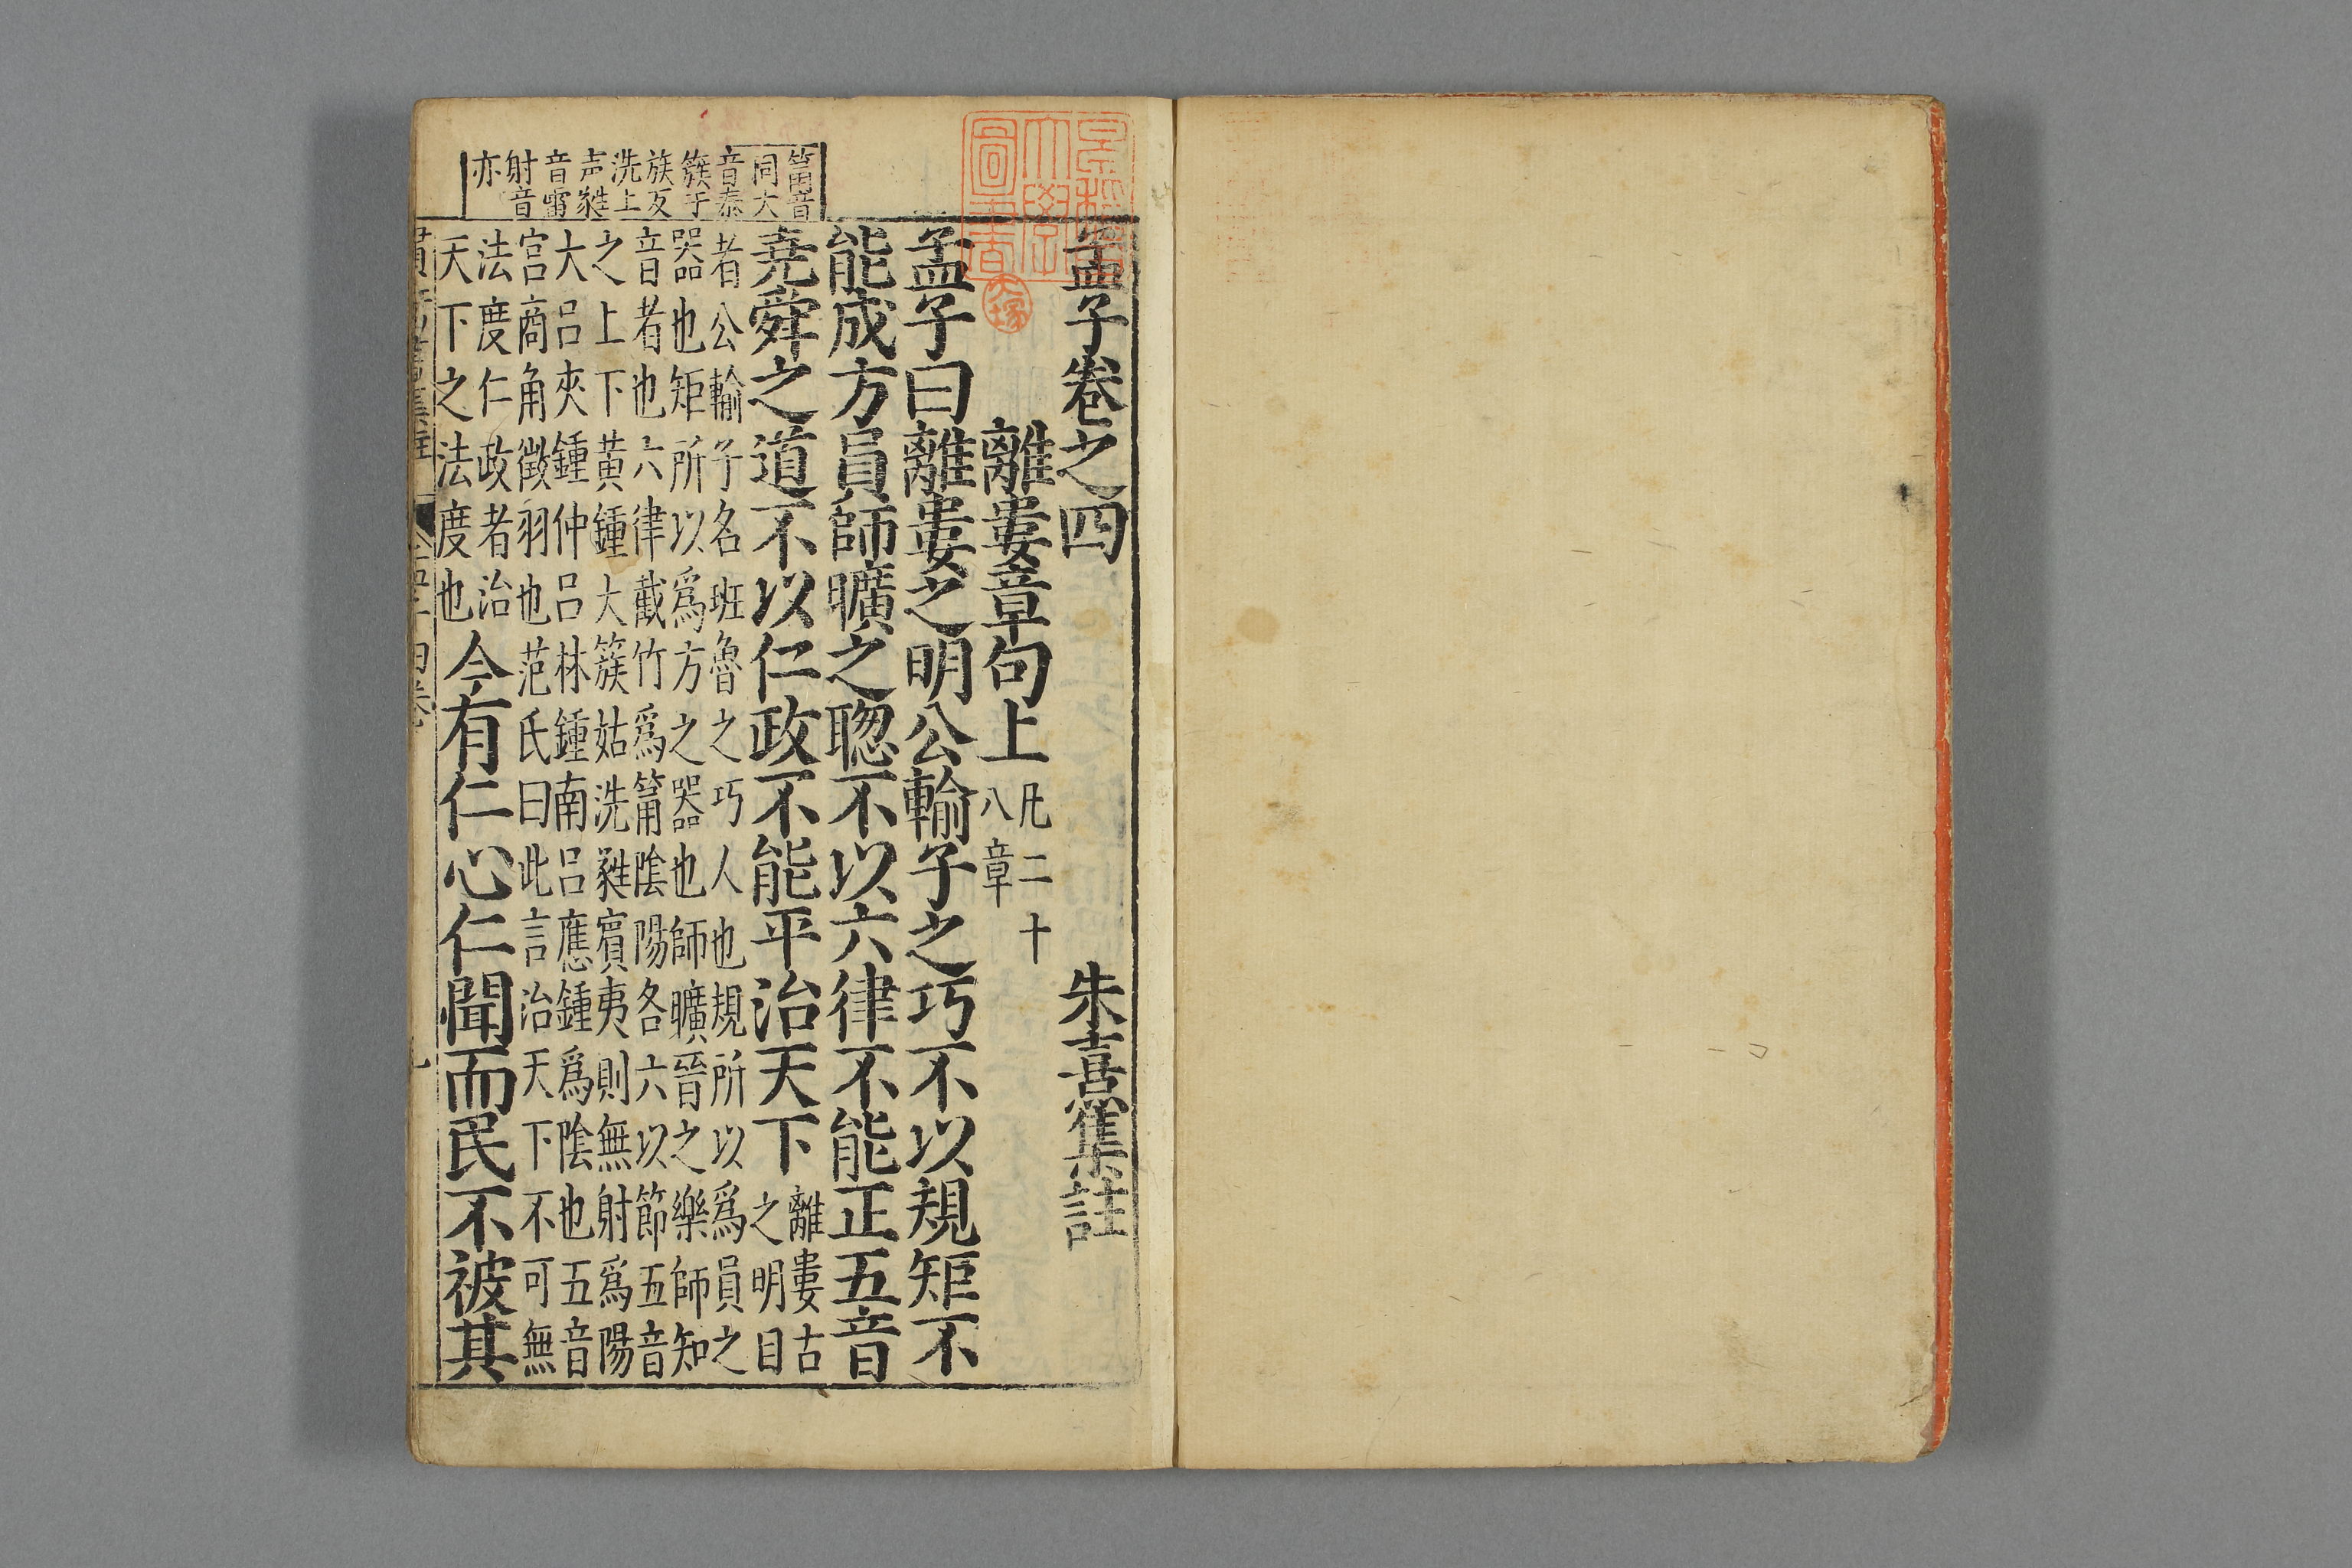 孟子卷之四
朱熹集註
離婁章句上
凡二十
八章
孟子曰離婁之明公輸子之巧不以規矩不
能成方員師曠之聦不以六律不能正五音
尭舜之道不以仁政不能平治天下
離婁古
之明目
者公輸子名班魯之巧人也規所以爲員之
器也矩所以爲方之器也師曠晉之樂師知
音者也六律截竹爲筩陰陽各六以節五音
之上下黃鍾大簇姑洗蕤賓夷則無射爲陽
大吕夾鍾仲吕林鍾南吕應鍾爲陰也五音
宫商角徵羽也范氏曰此言治天下不可無
法度仁政者治
天下之法度也
今有仁心仁聞而民不被其
筩音
同大
音泰
簇千
族反
洗上
声蕤
音
射音
亦
大塚